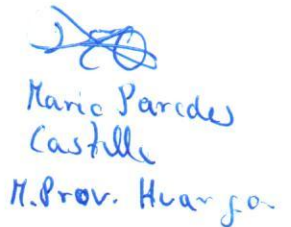 Mario Paredes
Castillo
M. Prov. Huarga